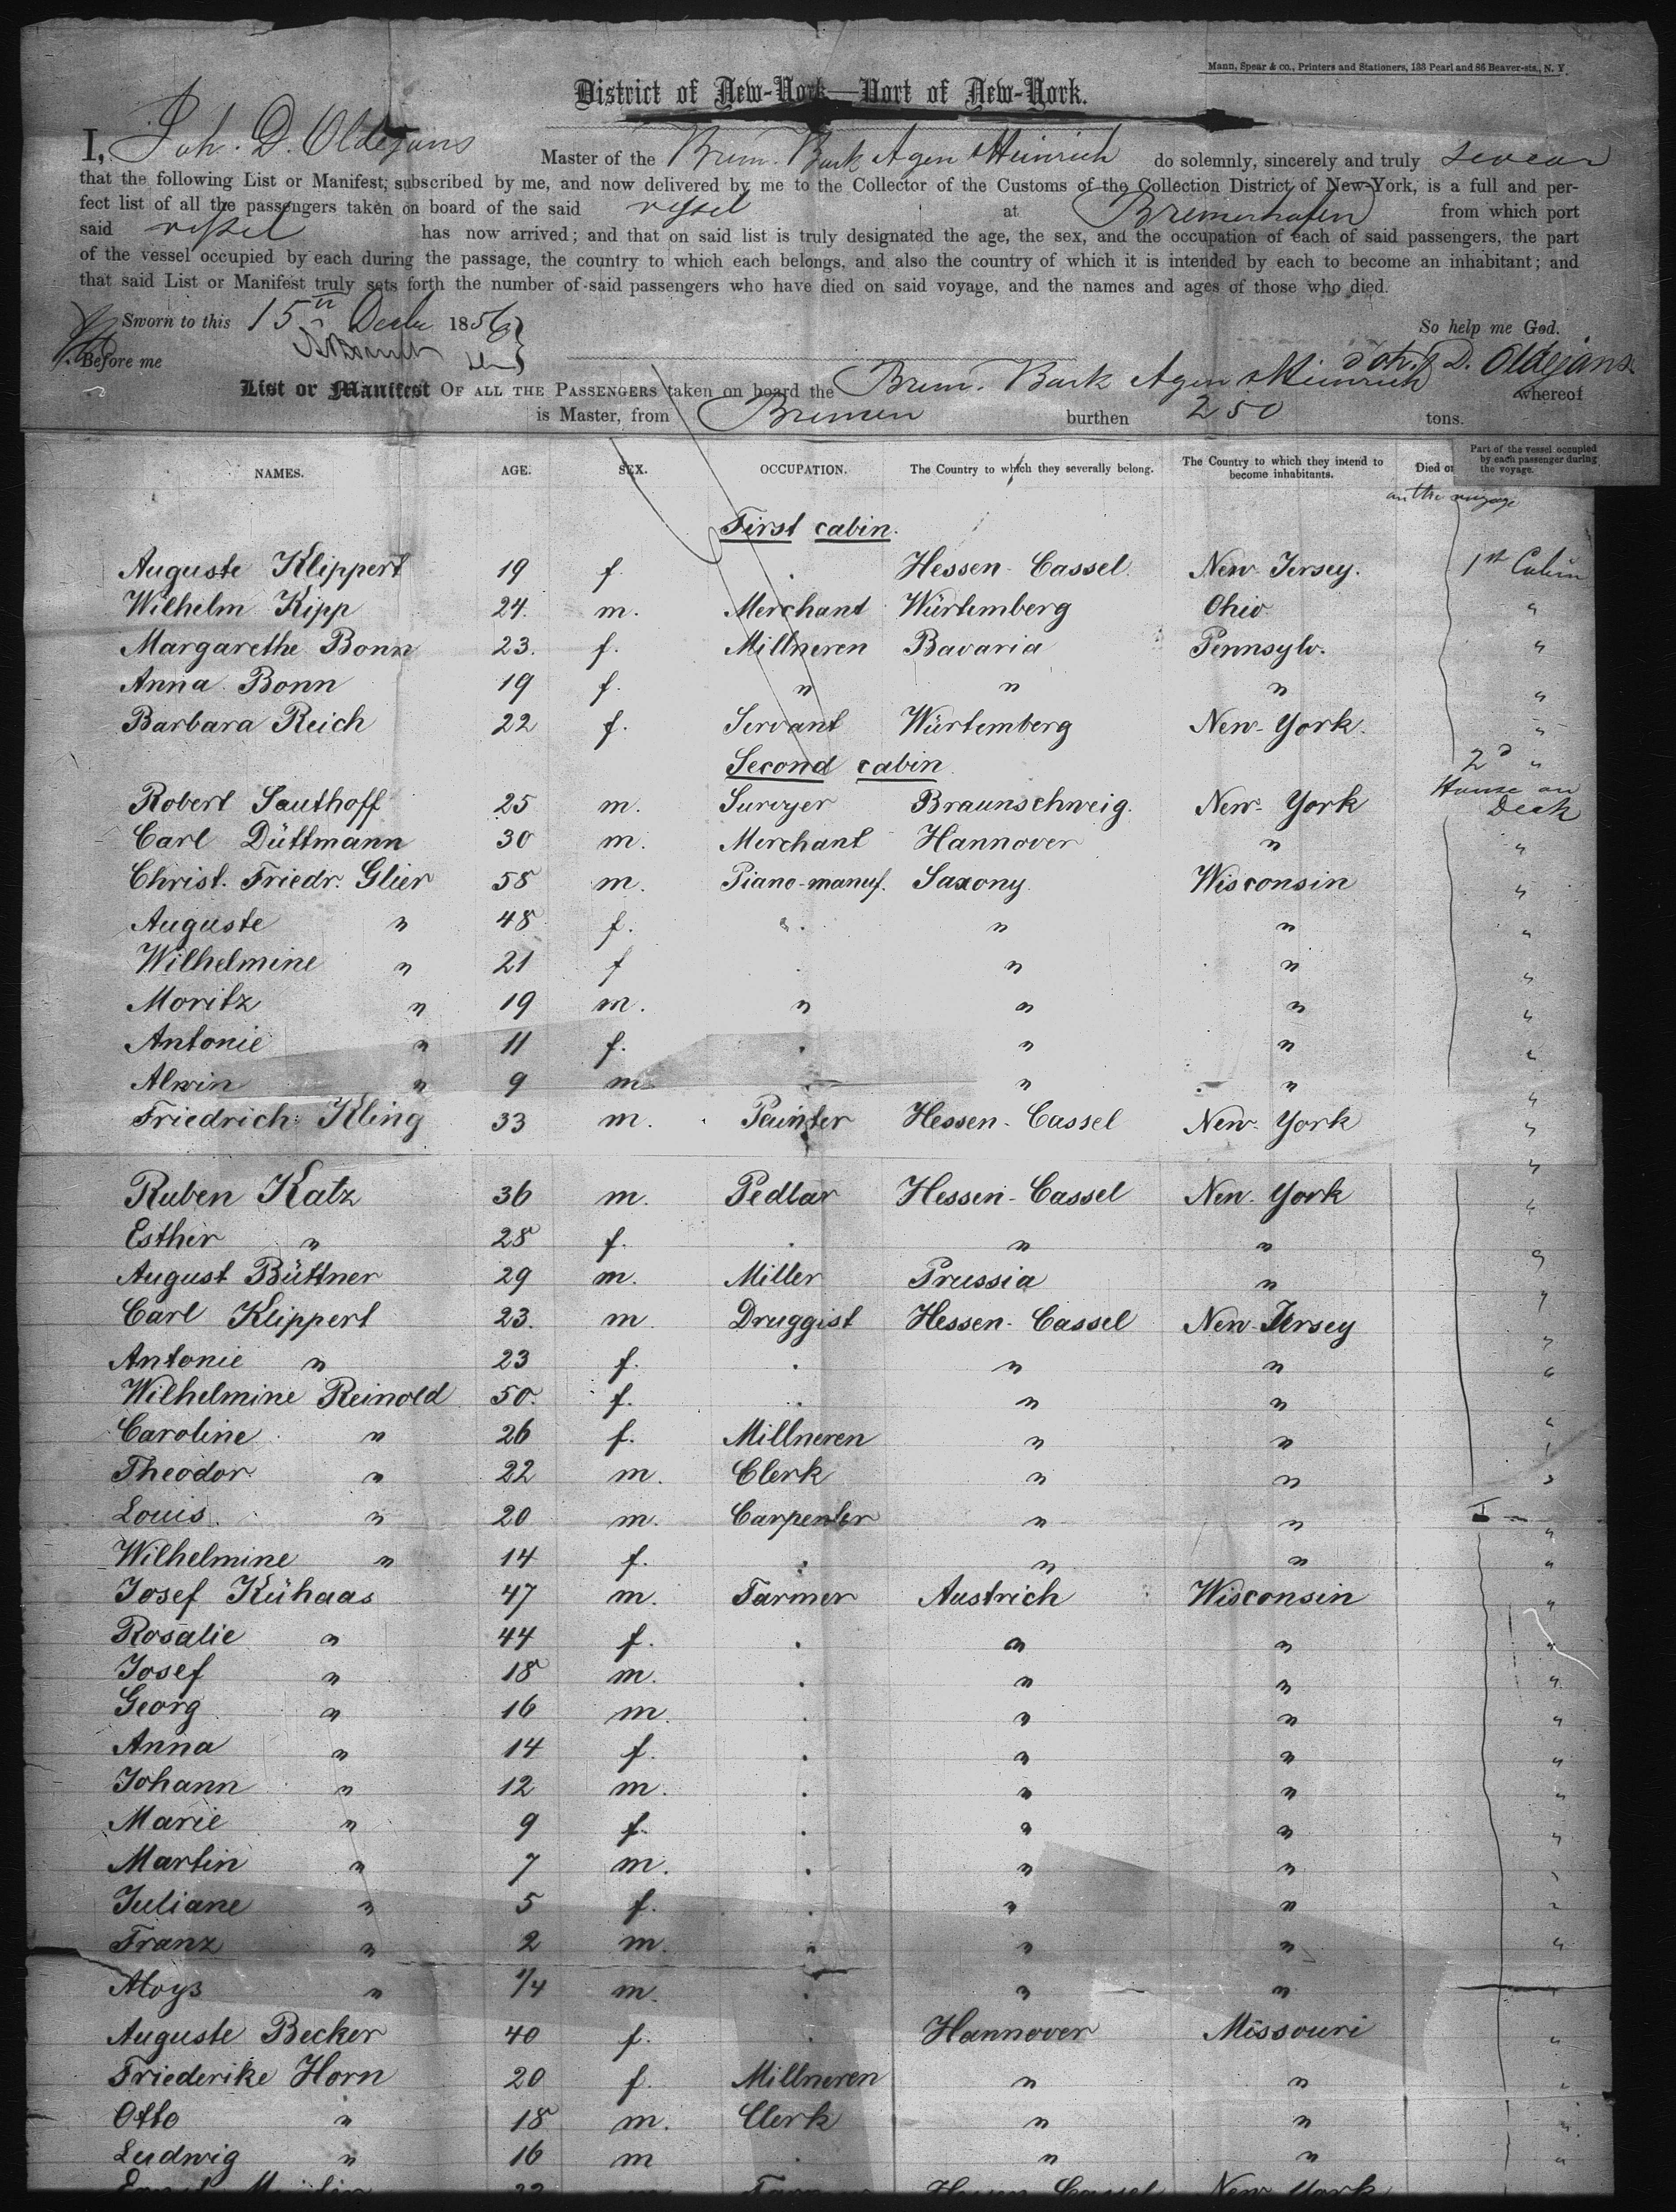 Mann, Spear & co., Printers and Stationers, 133 Pearl and 86 Beaver-sts., N. Y.
District of New-York—Port of New-York.
I, Joh. D. Oldejans Master of the Brem. Bark Agen & Heinrich do solemnly, sincerely and truly swear
that the following List or Manifest, subscribed by me, and now delivered by me to the Collector of the Customs of the Collection District of New-York, is a full and per-
fect list of all the passengers taken on board of the said vessel at Bremerhafen from which port
said vessel has now arrived; and that on said list is truly designated the age, the sex, and the occupation of each of said passengers, the part
of the vessel occupied by each during the passage, the country to which each belongs, and also the country of which it is intended by each to become an inhabitant; and
that said List or Manifest truly sets forth the number of said passengers who have died on said voyage, and the names and ages of those who died.
Sworn to this 15th Decbr 1856 So help me God.
Before me Joh. D. Oldejans
List or Manifest OF ALL THE PASSENGERS taken on board the Brem. Bark Agen & Heinrich whereof
is Master, from Bremen burthen 250 tons.
NAMES. AGE. SEX. OCCUPATION. The Country to which they severally belong. The Country to which they intend to become inhabitants. Died on the voyage Part of the vessel occupied by each passenger during the voyage.
First cabin.
Auguste Klippert 19 f. . Hessen-Cassel. New-Jersey. 1st Cabin
Wilhelm Kipp 24. m. Merchant Würtemberg Ohio "
Margarethe Bonn 23. f. Millneren Bavaria Pennsylv. "
Anna Bonn 19 f. " " " "
Barbara Reich 22 f. Servant Würtemberg New-York. "
Second cabin 2d "
Robert Sauthoff 25 m. Surveyer Braunschweig. New-York House on Deck
Carl Düttmann 30 m. Merchant Hannover " "
Christ. Friedr. Glier 58 m. Piano-manuf. Saxony. Wisconsin "
Auguste " 48 f. . " " "
Wilhelmine " 21 f . " " "
Moritz " 19 m. " " " "
Antonie " 11 f. . " " "
Alwin " 9 m . " " "
Friedrich Kling 33 m. Painter Hessen-Cassel New-York "
Ruben Katz 36 m. Pedlar Hessen-Cassel New-York "
Esther " 28 f. . " " "
August Büttner 29 m. Miller Prussia " "
Carl Klippert 23. m Druggist Hessen-Cassel New-Jersey "
Antonie " 23 f. . " " "
Wilhelmine Reinold 50. f. . " " "
Caroline " 26 f. Millneren " " "
Theodor " 22 m. Clerk " " "
Louis " 20 m. Carpenter " " "
Wilhelmine " 14 f. . " " "
Josef Kühaas 47 m. Farmer Austrich Wisconsin "
Rosalie " 44 f. . " " "
Josef " 18 m. . " " "
Georg " 16 m. . " " "
Anna " 14 f. . " " "
Johann " 12 m. . " " "
Marie " 9 f. . " " "
Martin " 7 m. . " " "
Juliane " 5 f. . " " "
Franz " 2 m. . " " "
Aloys " 1/4 m. . " "
Auguste Becker 40 f. . Hannover Missouri "
Friederike Horn 20 f. Millneren " " "
Otto " 18 m. Clerk " " "
Ludwig " 16 m . " " "
22 Farmer Hessen Cassel New York